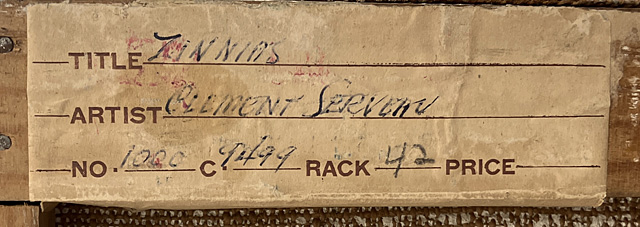 TITLE ZINNIAS
ARTIST CLEMONT SERVEAU
NO. 1000 C. 9499 RACK 42 PRICE